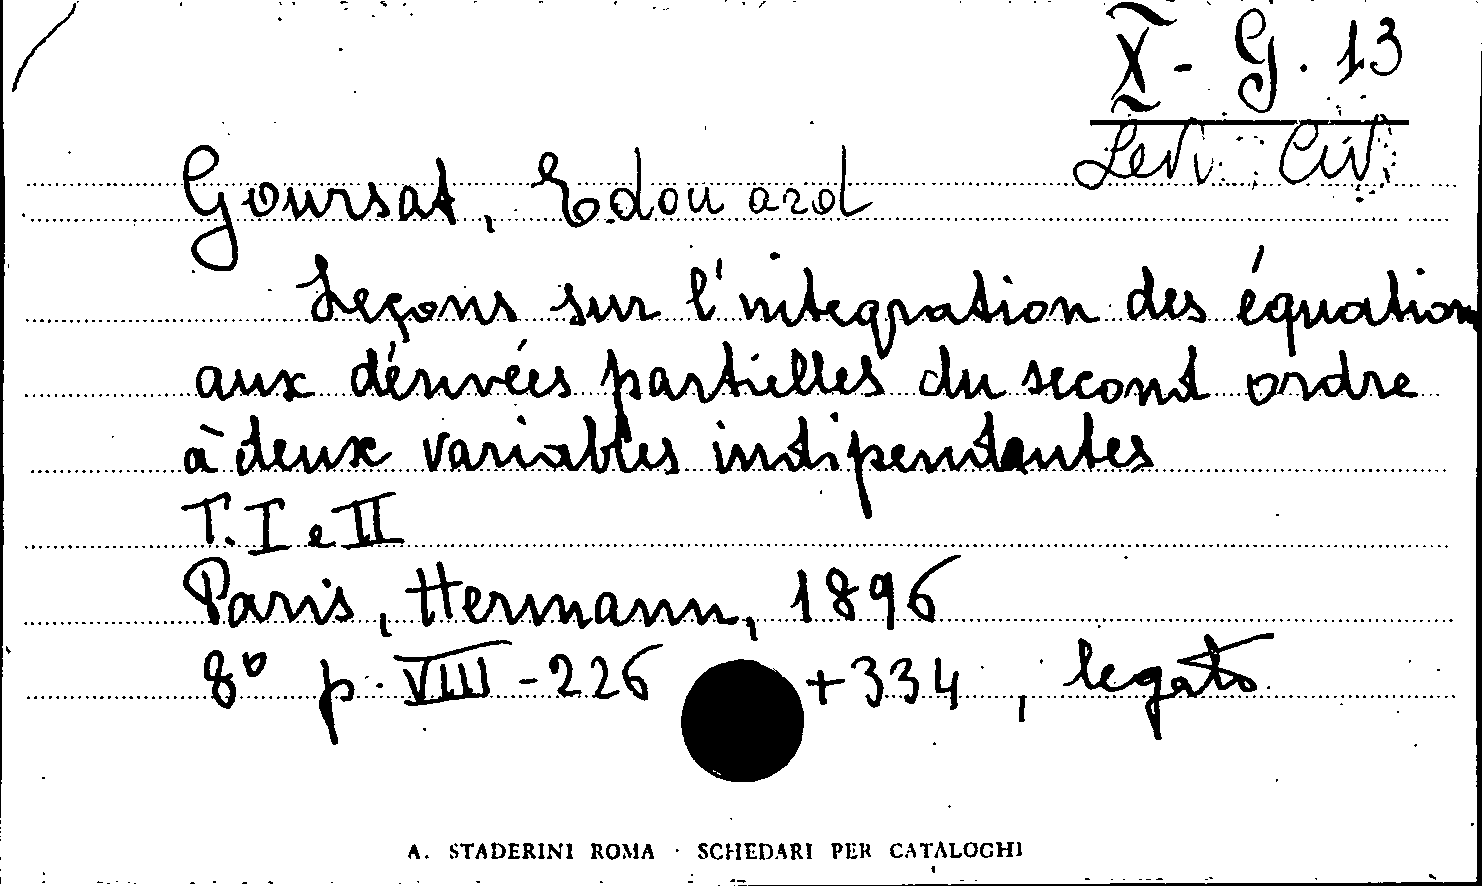 X - G. 13
Levi Civ.
Goursat, Edouard
Leçons sur l'integration des équation
aux dérivées partielles du second ordre
à deux variables indipendantes
T. I e II
Paris, Hermann, 1896
8º p. VIII - 226 + 334, legato
A. STADERINI ROMA · SCHEDARI PER CATALOGHI